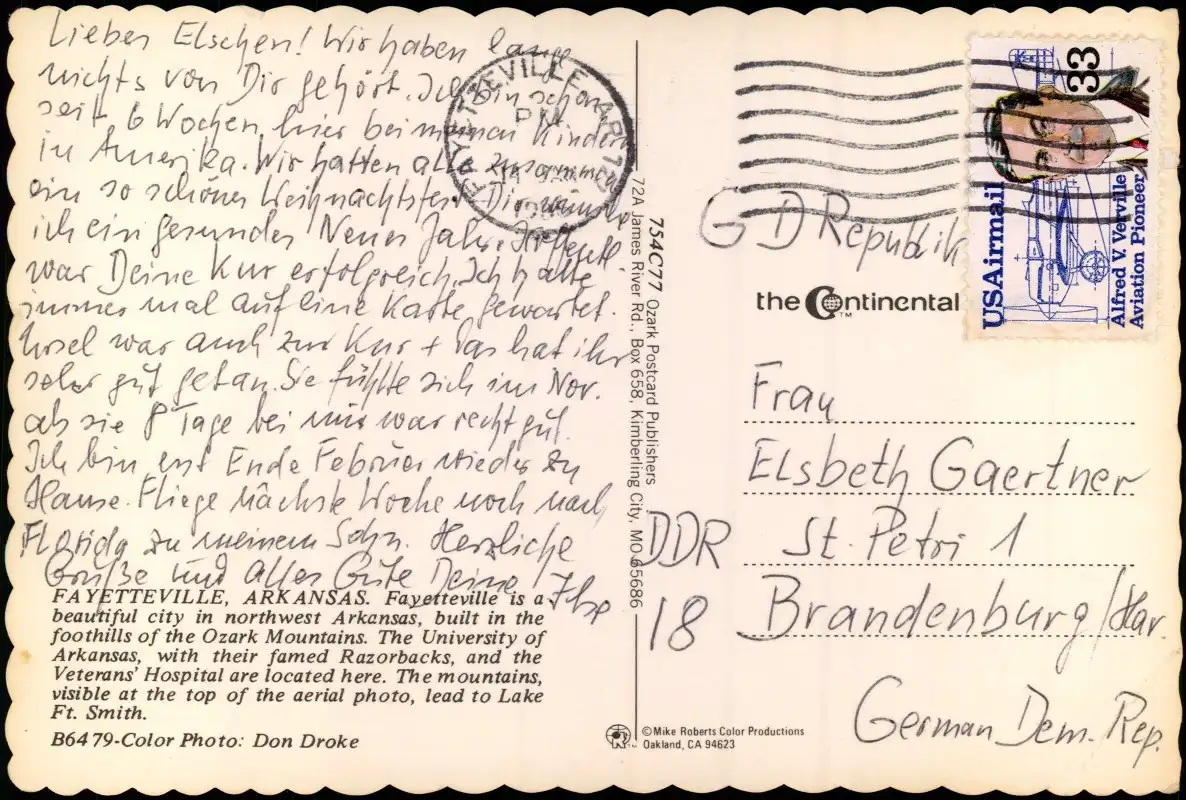 Lieben Elschen! Wir haben lange
nichts von Dir gehört. Ich bin schon
seit 6 Wochen hier bei meinen Kindern
in Amerika. Wir hatten alle zusammen
ein so schönes Weihnachtsfest. Dir wünsche
ich ein gesundes Neues Jahr. Hoffentl.
war Deine Kur erfolgreich. Ich hatte
immer mal auf eine Karte gewartet.
Ursel war auch zur Kur + das hat ihr
sehr gut getan. Sie fühlte sich im Nov.
als sie 8 Tage bei mir war recht gut.
Ich bin erst Ende Februar wieder zu
Hause. Fliege nächste Woche noch nach
Florida zu meinem Sohn. Herzliche
Grüße und alles Gute Deine Ilse
FAYETTEVILLE, ARKANSAS. Fayetteville is a
beautiful city in northwest Arkansas, built in the
foothills of the Ozark Mountains. The University of
Arkansas, with their famed Razorbacks, and the
Veterans' Hospital are located here. The mountains,
visible at the top of the aerial photo, lead to Lake
Ft. Smith.
B6479-Color Photo: Don Droke
FAYETTEVILLE
PM
754C77 Ozark Postcard Publishers
72A James River Rd., Box 658, Kimberling City, MO 65686
©Mike Roberts Color Productions
Oakland, CA 94623
USAirmail
33
Alfred V. Verville
Aviation Pioneer
G D Republik
the Continental
TM
Frau
Elsbeth Gaertner
DDR St. Petri 1
18 Brandenburg/Hav.
German Dem. Rep.